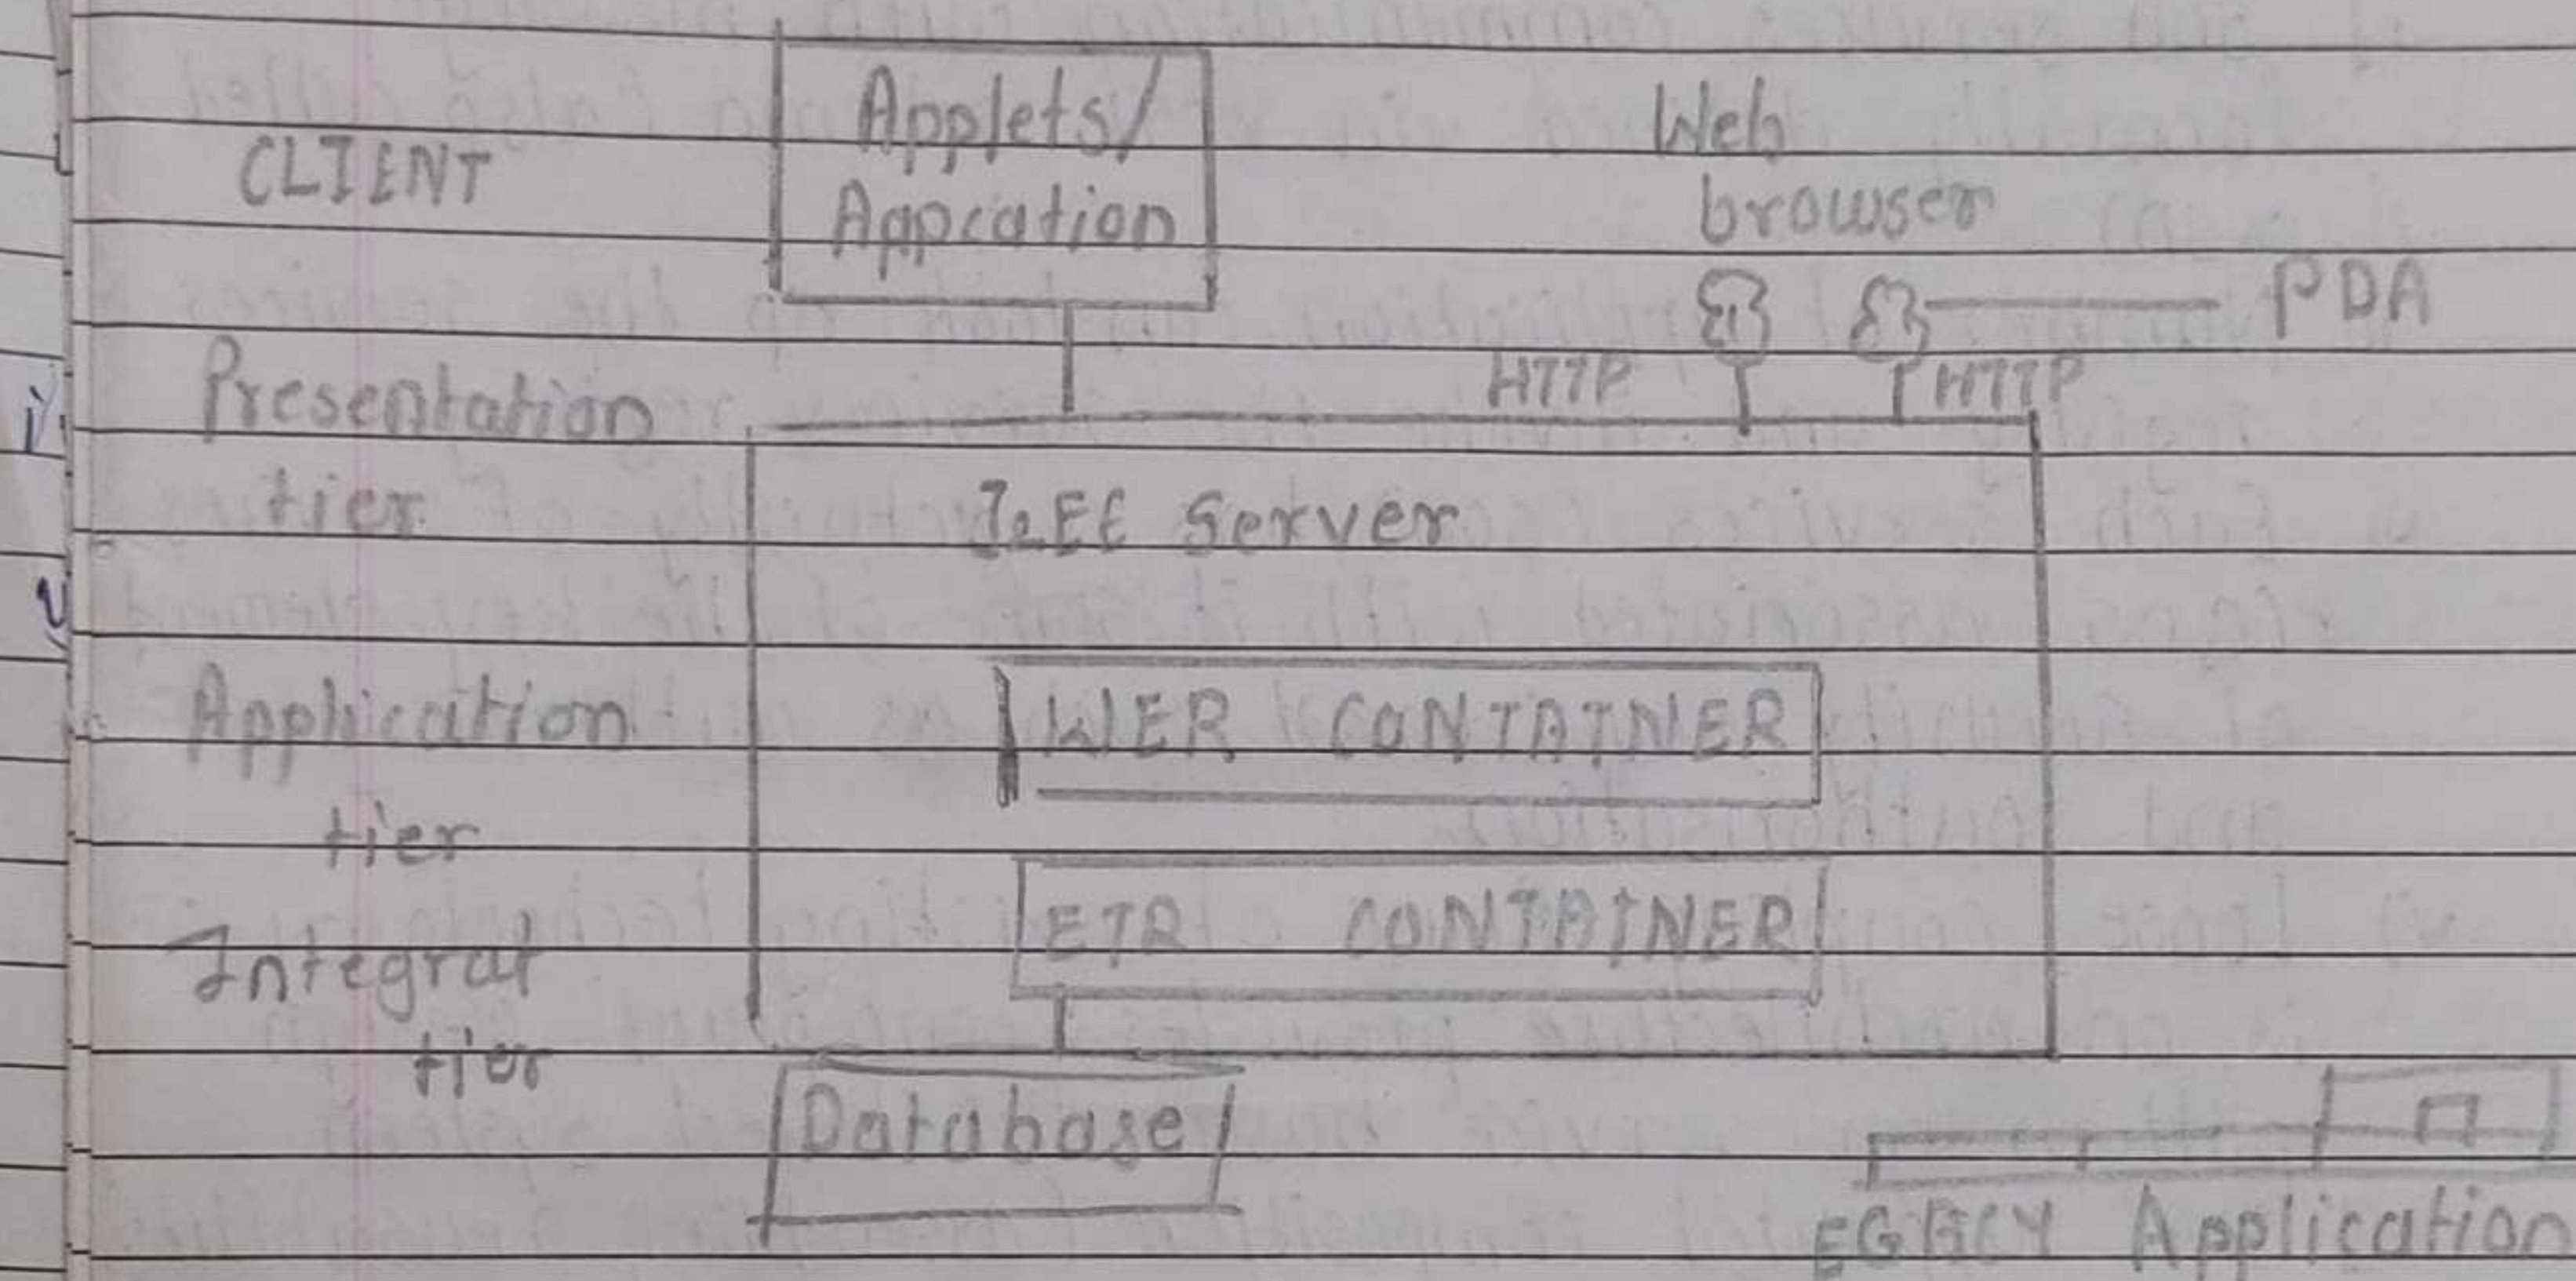 Applets/
Appcation
CLIENT
Web
browser
PDA
HTTP
HTTP
Presentation
tier
J2EE Server
Application
tier
WER CONTAINER
ETR CONTAINER
Integrat
tier
Database
EGACY Application